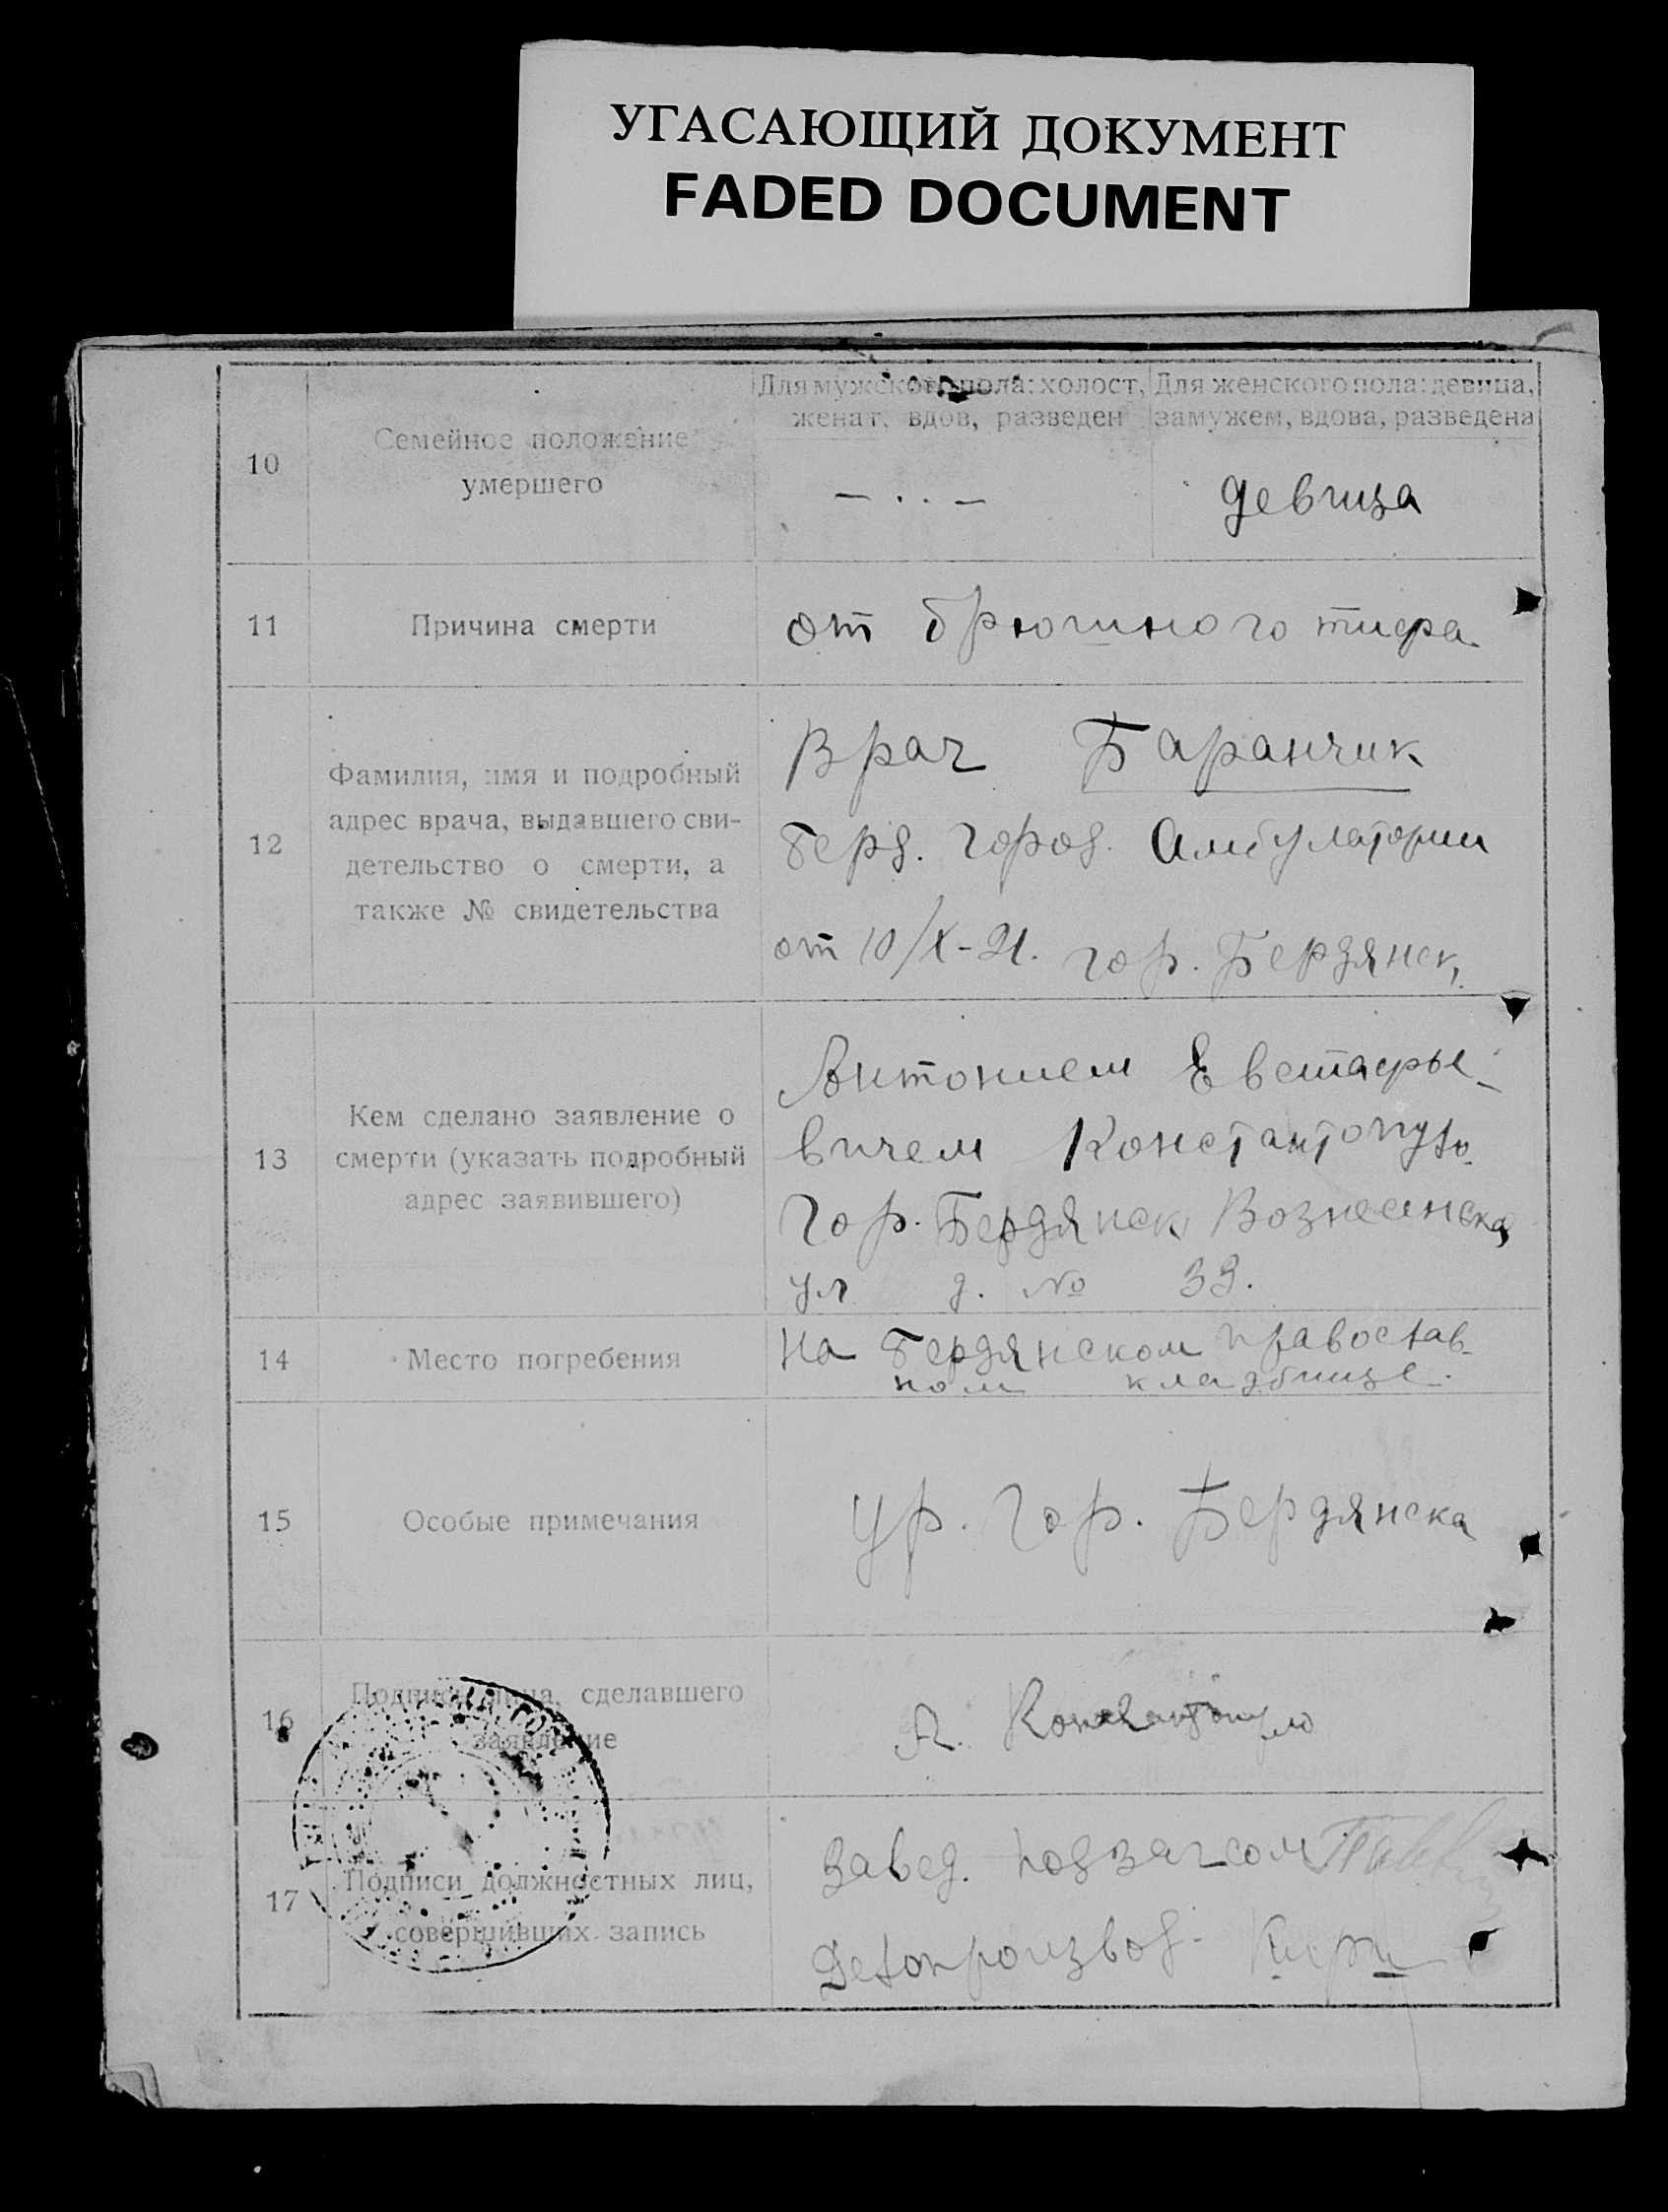 УГАСАЮЩИЙ ДОКУМЕНТ
FADED DOCUMENT
10
Семейное положение
умершего
Для мужского пола: холост,
женат, вдов, разведен
— . . —
Для женского пола: девица,
замужем, вдова, разведена
девица
11
Причина смерти
от брюшного тифа
12
Фамилия, имя и подробный
адрес врача, выдавшего сви-
детельство о смерти, а
также № свидетельства
Врач Баранчик
берд. город. Амбулатории
от 10/X-21. гор. Бердянск,
13
Кем сделано заявление о
смерти (указать подробный
адрес заявившего)
Антонием Евстафье-
вичем Константопуло
Гор. Бердянск Вознесенская
ул д. № 39.
14
Место погребения
На бердянском православ-
ном кладбище.
15
Особые примечания
ур. гор. Бердянска
16
Подпись лица, сделавшего
заявление
А. Константопуло
17
Подписи должностных лиц,
совершивших запись
Завед. подзагсом
Делопроизвод.